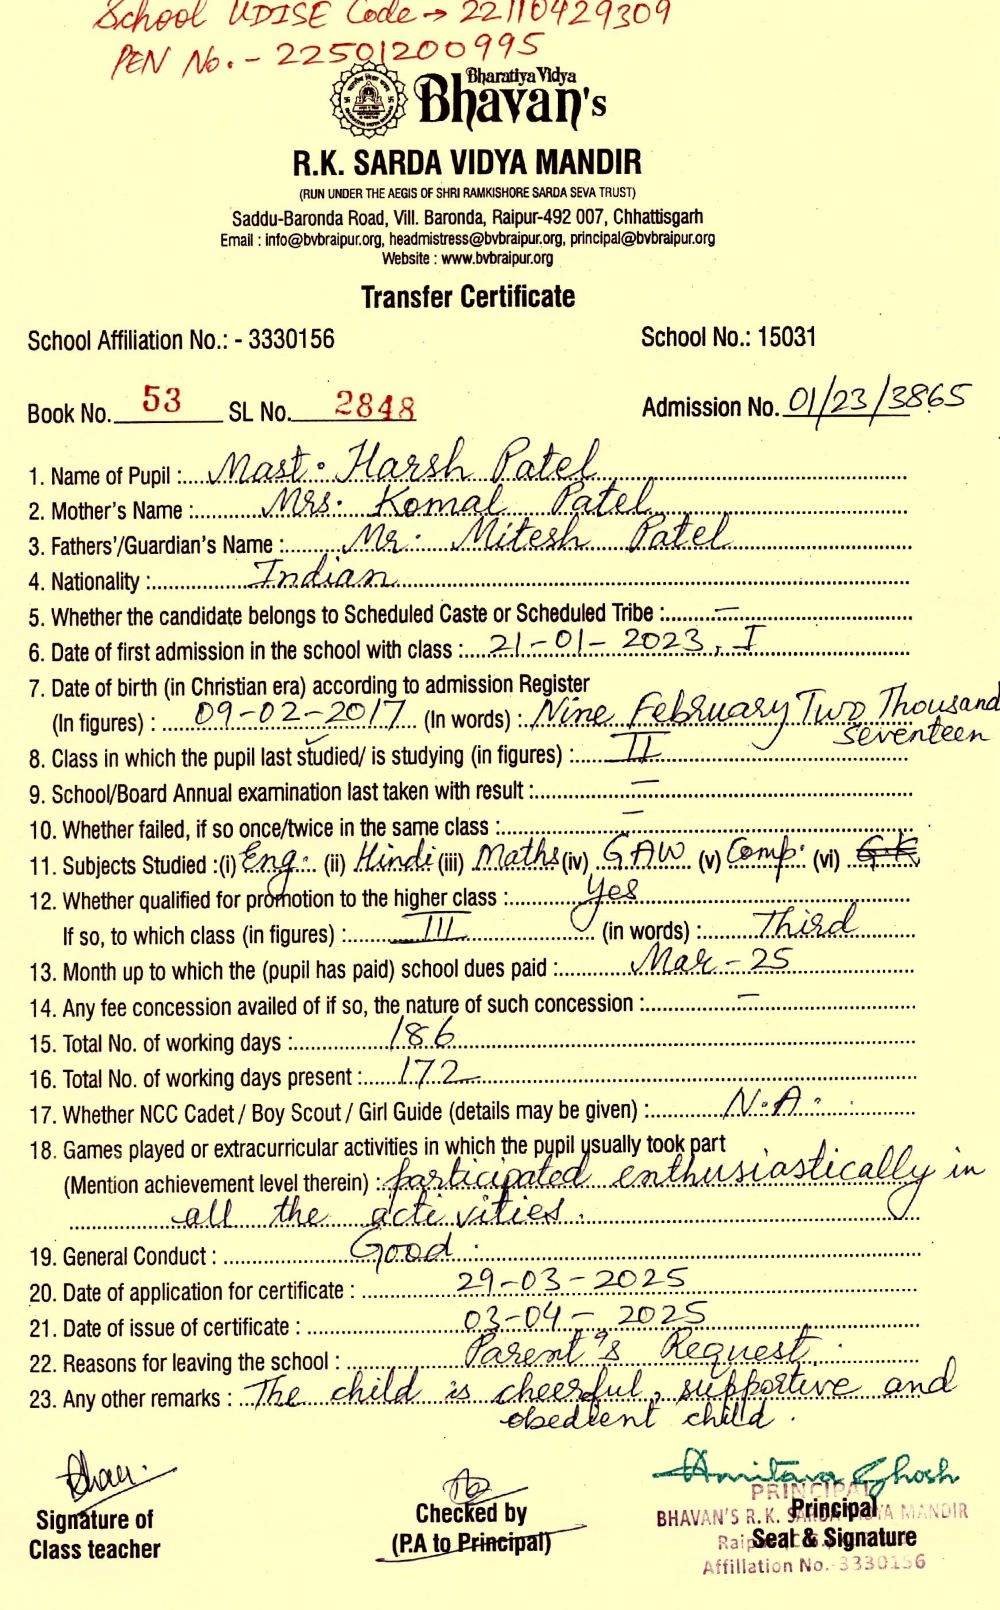 School UDISE Code → 22110429309
PEN No. - 22501200995
Bharatiya Vidya
Bhavan's
R.K. SARDA VIDYA MANDIR
(RUN UNDER THE AEGIS OF SHRI RAMKISHORE SARDA SEVA TRUST)
Saddu-Baronda Road, Vill. Baronda, Raipur-492 007, Chhattisgarh
Email : info@bvbraipur.org, headmistress@bvbraipur.org, principal@bvbraipur.org
Website : www.bvbraipur.org
Transfer Certificate
School Affiliation No.: - 3330156 School No.: 15031
Book No. 53 SL No. 2848 Admission No. 01/23/3865
1. Name of Pupil : Mast. Harsh Patel
2. Mother's Name : Mrs. Komal Patel
3. Fathers'/Guardian's Name : Mr. Mitesh Patel
4. Nationality : Indian
5. Whether the candidate belongs to Scheduled Caste or Scheduled Tribe : –
6. Date of first admission in the school with class : 21-01-2023, I
7. Date of birth (in Christian era) according to admission Register
(In figures) : 09-02-2017 (In words) : Nine February Two Thousand
seventeen
8. Class in which the pupil last studied/ is studying (in figures) : II
9. School/Board Annual examination last taken with result : –
10. Whether failed, if so once/twice in the same class : –
11. Subjects Studied :(i) Eng. (ii) Hindi (iii) Maths (iv) GAW (v) Comp. (vi) G.K
12. Whether qualified for promotion to the higher class : Yes
If so, to which class (in figures) : III (in words) : Third
13. Month up to which the (pupil has paid) school dues paid : Mar-25
14. Any fee concession availed of if so, the nature of such concession : –
15. Total No. of working days : 186
16. Total No. of working days present : 172
17. Whether NCC Cadet / Boy Scout / Girl Guide (details may be given) : N.A.
18. Games played or extracurricular activities in which the pupil usually took part
(Mention achievement level therein) : participated enthusiastically in
all the activities.
19. General Conduct : Good.
20. Date of application for certificate : 29-03-2025
21. Date of issue of certificate : 03-04-2025
22. Reasons for leaving the school : Parent's Request.
23. Any other remarks : The child is cheerful, supportive and
obedient child.
Amitava Ghosh
PRINCIPAL
Signature of Checked by Principal
BHAVAN'S R.K. SARDA VIDYA MANDIR
Class teacher (P.A to Principal) Seal & Signature
Affiliation No.-3330156